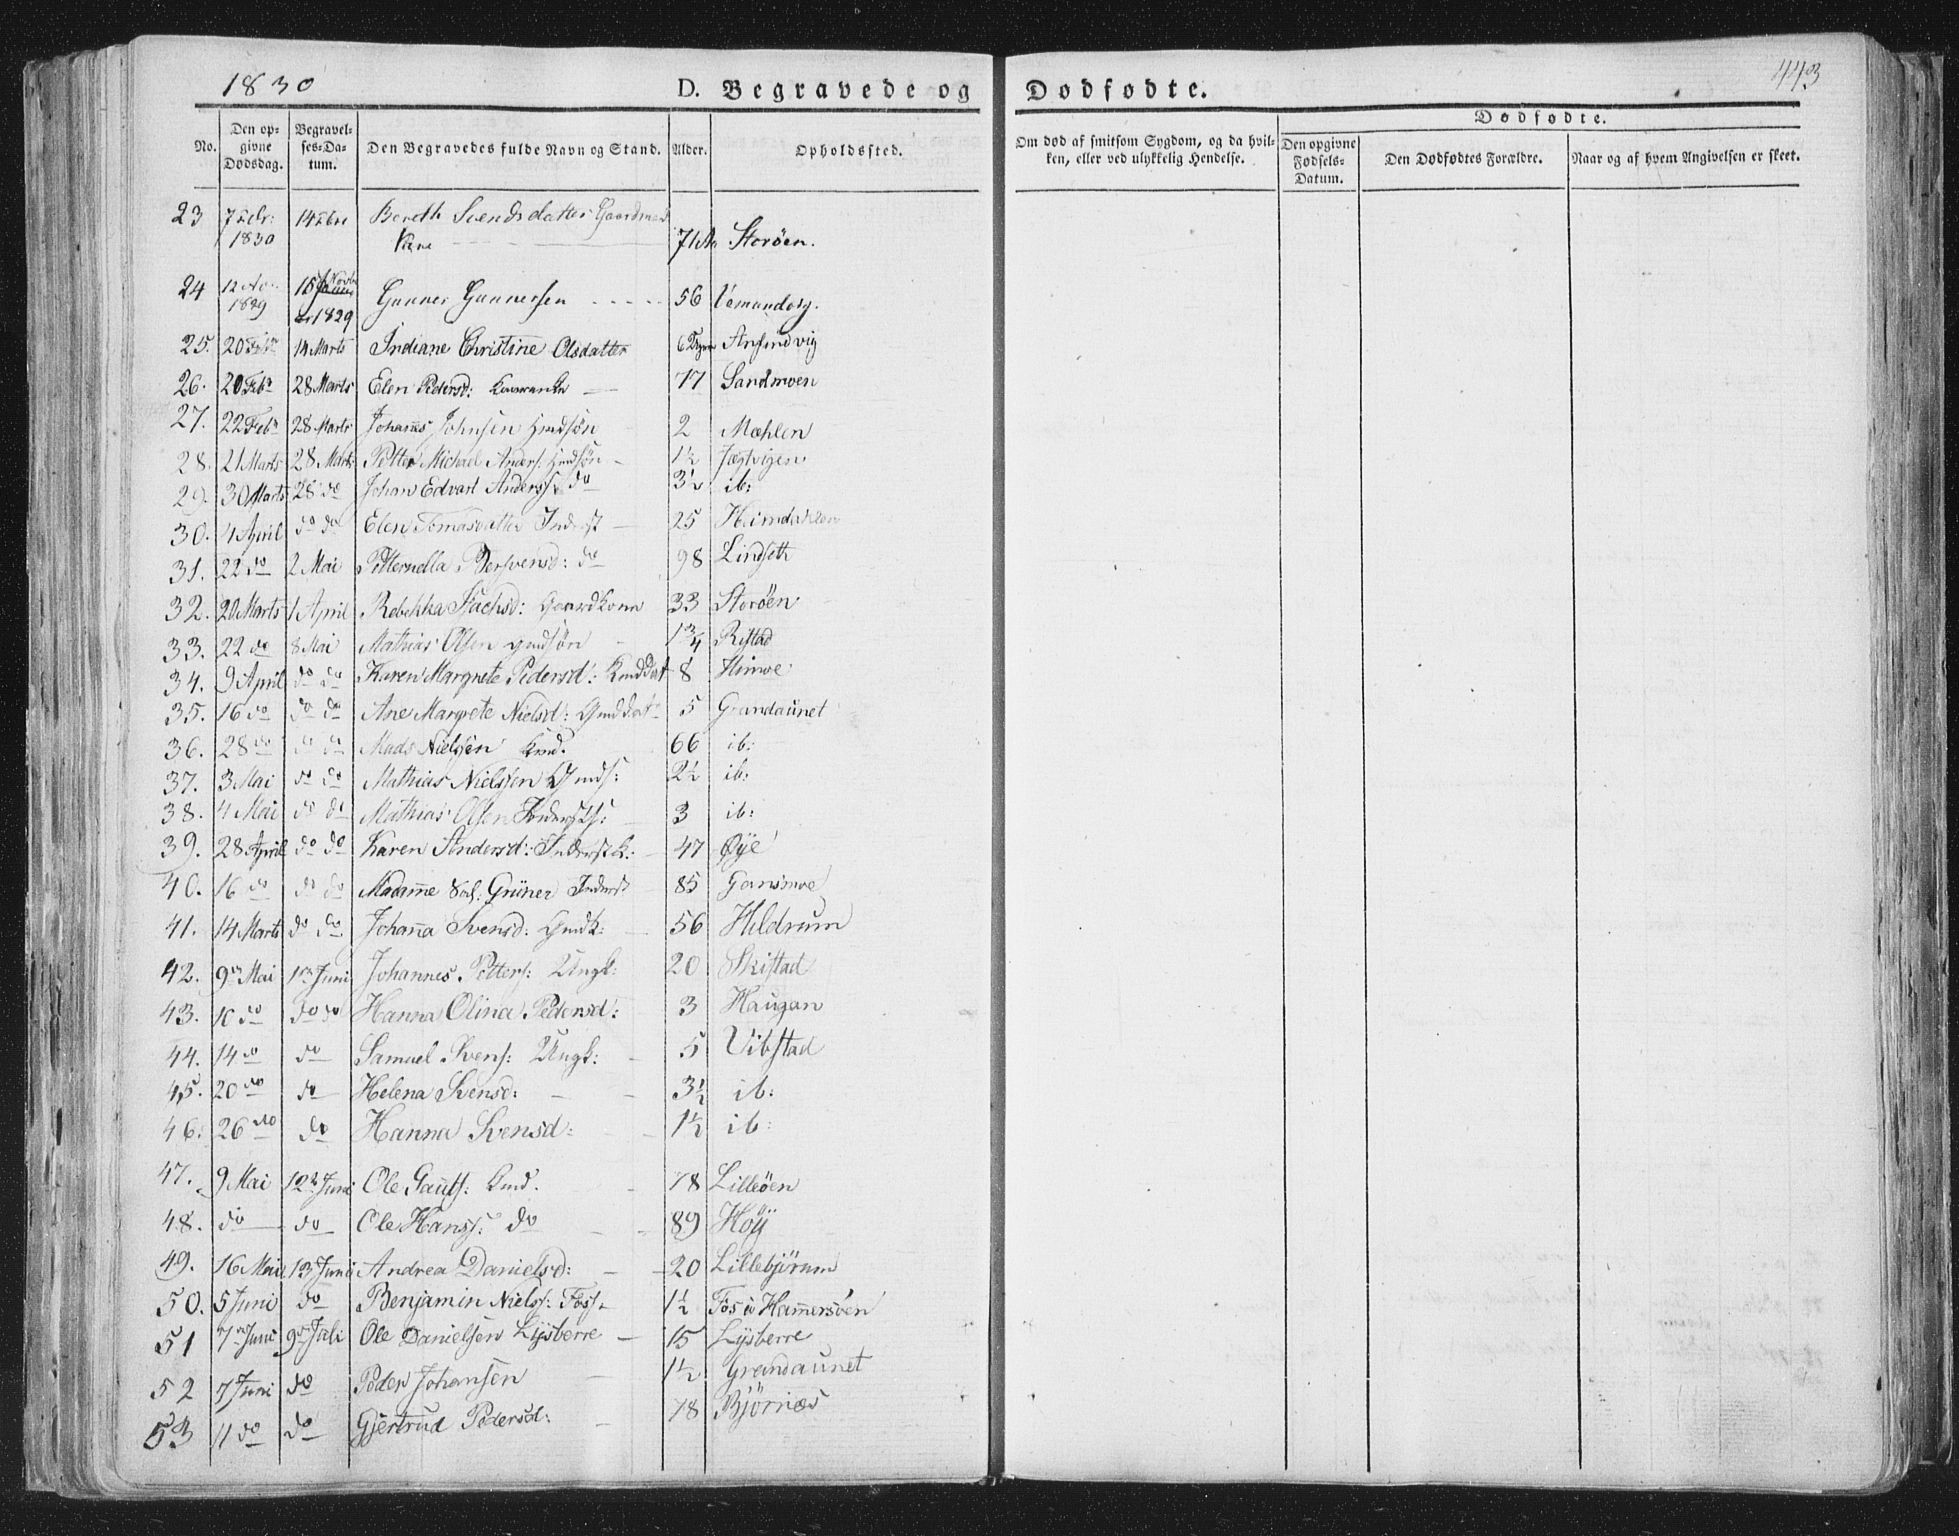 1830 D. Begravede og Dødfødte. 443
No. Den opgivne Dødsdag. Begravelses-Datum. Den Begravedes fulde Navn og Stand. Alder. Opholdssted. Om død af smitsom Sygdom, og da hvilken, eller ved ulykkelig Hendelse. Dødfødte. Den opgivne Fødsels-Datum. Den Dødfødtes Forældre. Naar og af hvem Angivelsen er skeet.
23 7 Febr: 1830 14 Febr Bereth Svends datter Gaardmands
Kone 71 Storöen.
24 12 Nov 1829 15 Novbr 1829 Gunner Gunnersen 56 Vemundvig.
25. 20 Febr 14 Marts Indiane Christine Olsdatter 6 Dage
26. 20 Feb 28 Marts Elen Pedersd: 77 Sandmoen
27. 22 Feb 28 Marts Johannes Johnsen Gmdsøn 2 Mæhlen
28. 21 Marts 28 Marts Petter Michael Anders: Gmdsøn 1½ Jægtvigen
29. 30 Marts 28 do Johan Edvart Anderss. do 3½ ib:
30. 4 April do do Elen Tomasdatter Inderst 25
31. 22 do 2 Mai Petternella Persvensd: do 98 Lindseth
32. 20 Marts 1 April Rebekka Gaardkone 33 Storöen
33. 22 do 8 Mai Mathias Olsen gmdsøn 1¾ Ristad
34. 9 April do do Karen Margrete Pedersd: 8 Himoe
35. 16 do do do Ane Margrete Nielsd: Gmddatr 5 Grandaunet
36. 28 do do do Mads Nielsen Gmd. 66 ib:
37. 3 Mai do do Mathias Nielssen Gmds: 2½ ib:
38. 4 Mai do do Mathias Olsen Inderstss: 3 ib:
39. 28 April do do Karen Andersd: Inderst K: 47 Øÿe
40. 16 do do do Madamme Grüner Inderst 85 Gansmoe
41. 14 Marts do do Johanna Svensd: Gmdk: 56 Hildrum
42. 9de Mai 1ste Juni Johannes Petters: Ungk: 20 Skistad
43. 10 do do do Hanna Olina Pedersd: 3 Haugan
44. 14 do do Samuel Svens: Ungk: 5 Vibstad
45. 20 do do Helena Svensd: 3½ ib:
46. 26 do do Hanna Svensd: 1½ ib:
47. 9 Mai 12te Juni Ole Gauts: Gmd. 78 Lilleöen
48. do do Ole Hanss: do 89 Höÿ
49. 16 Mai 13 Juni Andrea Danielsd: 20 Lillebjörum
50. 5 Juni do Benjamin Nielss: Foss 1½ Fos i Hammersöen
51 7de Juni 9de Juli Ole Danielsen Lysberre 15 Lysberre
52 7 Juni do Peder Johansen 1½ Grandaunet
53 11 do do Gjertrud Pedersd: 78 Bjørnæs